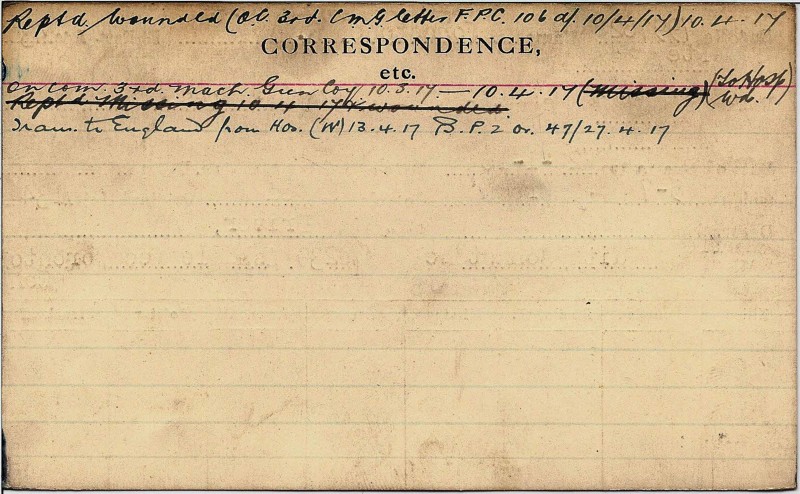 Reptd. Wounded (OC. 3rd. C.M.G. letter F.P.C. 106 d/ 10/4/17) 10.4.17
CORRESPONDENCE,
etc.
On Com. 3rd. Mach. Gun Coy. 10.3.17 — 10.4.17 (Missing) (To Hosp. Wd.)
Reptd. Missing 10.4.17 & wounded.
Trans. to England from Hos. (W) 13.4.17 B.P.2 or. 47/27.4.17